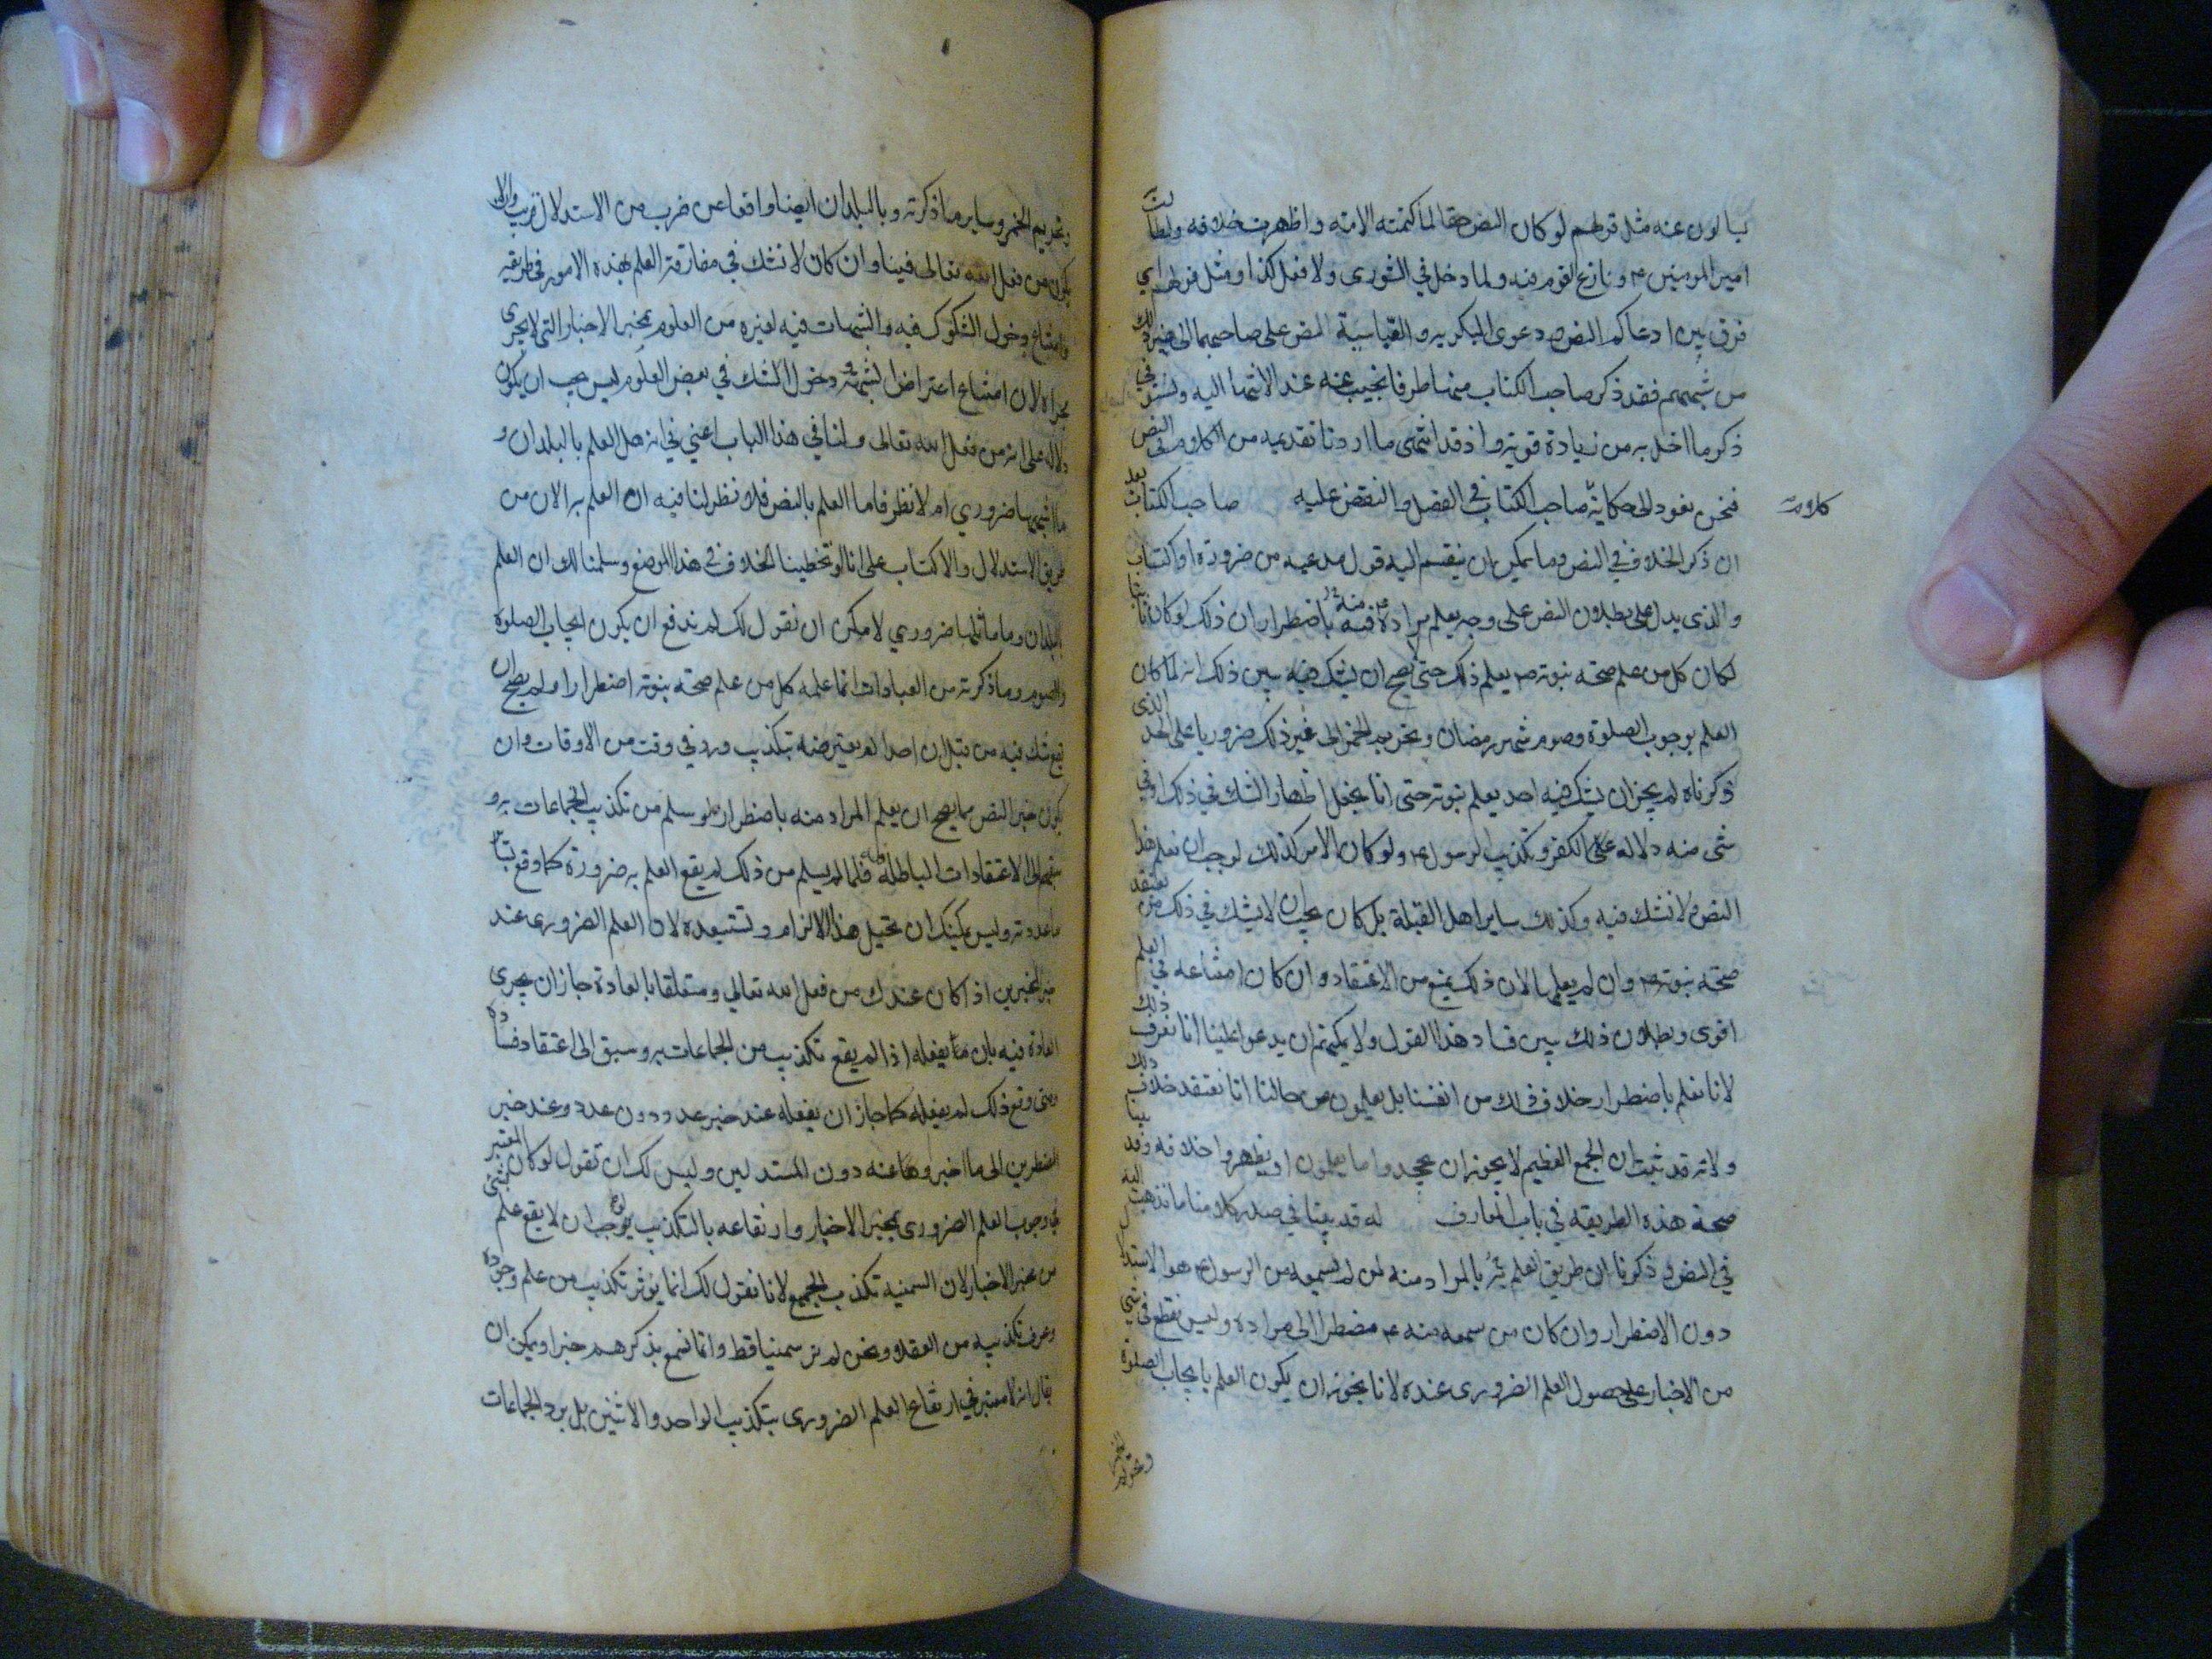 يسالون عنه مثل قولهم لو كان النص حقا لما كتمته الامة واظهرت خلافه ولطالب
امير المومنين ع ونازع القوم فيه ولما دخل في الشورى ولا فعل كذا ومثل قولهم اي
فرق بين ادعاكم النص و دعوى البكرية والعباسية النص على صاحبهما الى غير ذلك
من شبههم فقد ذكر صاحب الكتاب منها طرفا نجيب عنه عند الانتها اليه ونستدرك في
ذكر ما اخل به من زيادة قوية واذ قد انتهى ما اردنا تقديمه من الكلام في النص
فنحن نعود الى حكاية صاحب الكتاب في الفصل والنقض عليه صاحب الكتاب بعد
كلام
ان ذكر الخلاف في النص وما يمكن ان ينقسم اليه قول مدعيه من ضرورة او اكتساب
والذى يدل على بطلان النص على وجه يعلم مراده ع فيه منه باضطرار ان ذلك لو كان ثابتا
لكان كل من علم صحة نبوته ص يعلم ذلك حتى لا يصح ان يشك فيه يبين ذلك انه لما كان
العلم بوجوب الصلوة وصوم شهر رمضان وتحريم الخمر الى غير ذلك ضروريا على الحد الذى
ذكرناه لم يجز ان يشك فيه احد يعلم نبوته حتى انا نجعل اظهار الشك في ذلك او في
شى منه دلالة على الكفر وتكذيب الرسول ع ولو كان الامر كذلك لوجب ان نعلم هذا
النص ولا نشك فيه وكذلك ساير اهل القبلة بل كان يجب ان لا يشك في ذلك من يعتقد
صحة نبوته ص وان لم يعلمها لان ذلك يمنع من الاعتقاد وان كان امتناعه في العلم
اقوى وبطلان ذلك يبين فساد هذا القول ولا يمكنهم ان يدعوا علينا انا نعرف ذلك
لانا نعلم باضطرار خلاف ذلك من انفسنا بل يعلمون من حالنا انا نعتقد خلاف ذلك
ولانه قد ثبت ان الجمع العظيم لا يجوز ان يجحدوا ما يعلمون او يظهروا خلافه وقد بينا
صحة هذه الطريقه في باب المعارف له قد بينا في صدر كلامنا ما نذهب اليه
في النص وذكرنا ان طريق العلم بالمراد منه لمن لم يسمعه من الرسول ع هو الاستدلال
دون الاضطرار وان كان من سمعه منه ع مضطرا الى مراده وليس نقطع في شي
من الاخبار على حصول العلم الضرورى عنده لانا نجوز ان يكون العلم بايجاب الصلوة
وتحريم الخمر
وتحريم الخمر وساير ما ذكرته وبالبلدان ايضا واقعا عن ضرب من الاستدلال قريب والا
يكون من فعل الله تعالى فينا وان كان لا نشك في مفارقة العلم بهذه الامور في طريقه
وامتناع دخول الشكوك فيه والشبهات فيه لغيره من العلوم بمخبر الاخبار التي لا يجرى
مجراه لان امتناع اعتراض الشبهة ودخول الشك في بعض العلوم ليس يجب ان يكون
دلالة على انه من فعل الله تعالى ولنا في هذا الباب اعني في انه هل العلم بالبلدان و
ما اشبهها ضروري ام لا نظر فاما العلم بالنص فلا نظر لنا فيه ان العلم به الان من
طريق الاستدلال والاكتساب على انا لو تخطينا الخلاف في هذا الموضع وسلمنا لك ان العلم
بالبلدان وما ماثلها ضروري لامكن ان نقول لك لم ندفع ان يكون ايجاب الصلوة
والصوم وما ذكرته من العبادات انما علمه كل من علم صحة نبوته اضطرارا ولم يصح ان
يقع شك فيه من قبل ان احدا لم يعترضه بتكذيب ورد في وقت من الاوقات وان
يكون خبر النص مما يصح ان يعلم المراد منه باضطرار لو سلم من تكذيب الجماعات به و
سبقهم الى الاعتقادات الباطله فيه فلما لم يسلم من ذلك لم يقع العلم به ضرورة كما وقع بساير
ما عددته وليس يمكنك ان تحيل هذا الالزام وتستبعده لان العلم الضرورى عند
خبر المخبرين اذا كان عندك من فعل الله تعالى ومتعلقا بالعادة جاز ان يجرى
العادة فيه بان يفعله اذا لم يقع تكذيب من الجماعات به وسبق الى اعتقاد فساده
ومتى وقع ذلك لم يفعله كما جاز ان يفعله عند خبر عدد دون عدد وعند خبر
المضطرين الى ما اخبروا عنه دون المستدلين وليس لك ان تقول لو كان المعتبر
في وجوب العلم الضرورى بمخبر الاخبار وارتفاعه بالتكذيب لوجب ان لا يقع علم بشى
من مخبر الاخبار لان السمنيه تكذب الجميع لانا نقول لك انما يوثر تكذيب من علم وجوده
وعرف تكذيبه من العقلا ونحن لم نر سمنيا قط وانما نسمع بذكرهم خبرا ويمكن ان
يقال انه لا معتبر في ارتفاع العلم الضرورى بتكذيب الواحد والاثنين بل برد الجماعات